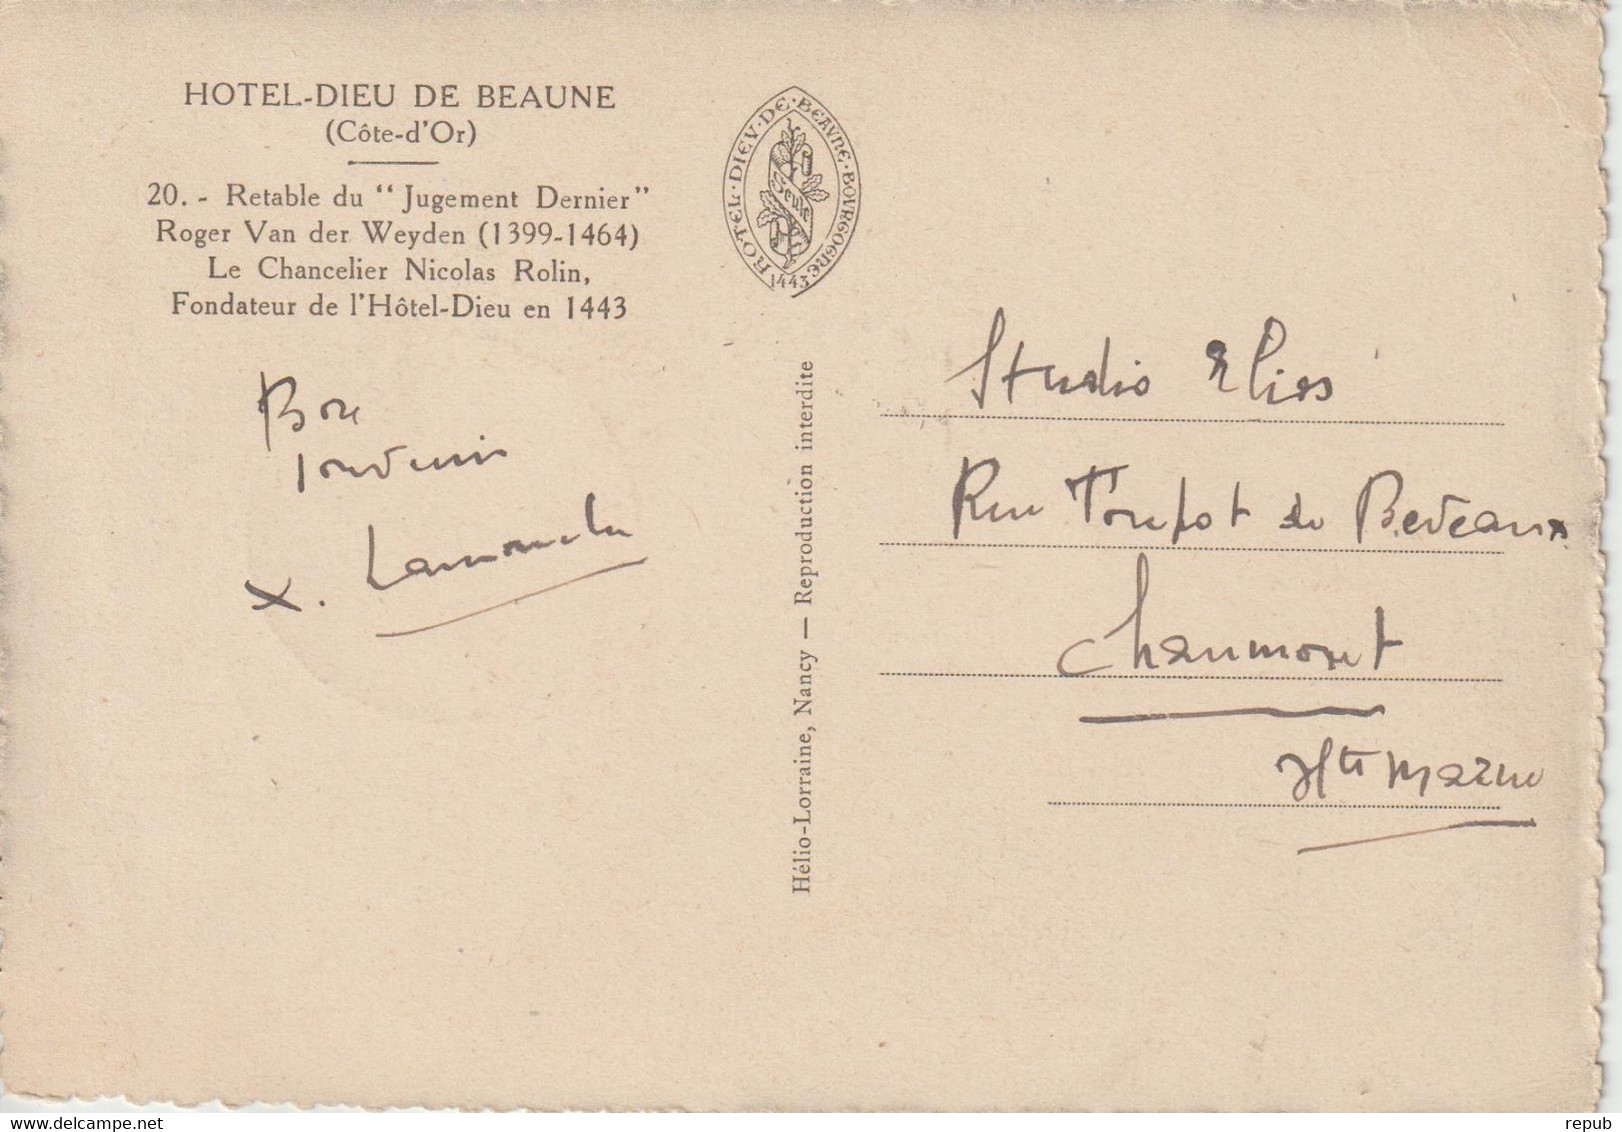 HOTEL-DIEU DE BEAUNE
(Côte-d'Or)
20. - Retable du "Jugement Dernier"
Roger Van der Weyden (1399-1464)
Le Chancelier Nicolas Rolin,
Fondateur de l'Hôtel-Dieu en 1443
HOTEL·DIEV·DE·BEAVNE·BOVRGOGNE
1443
Seule
Bon
souvenir
Hélio-Lorraine, Nancy — Reproduction interdite
Studio Elios
Rue Toupot de Beveaux
Chaumont
Hte Marne
www.delcampe.net
repub